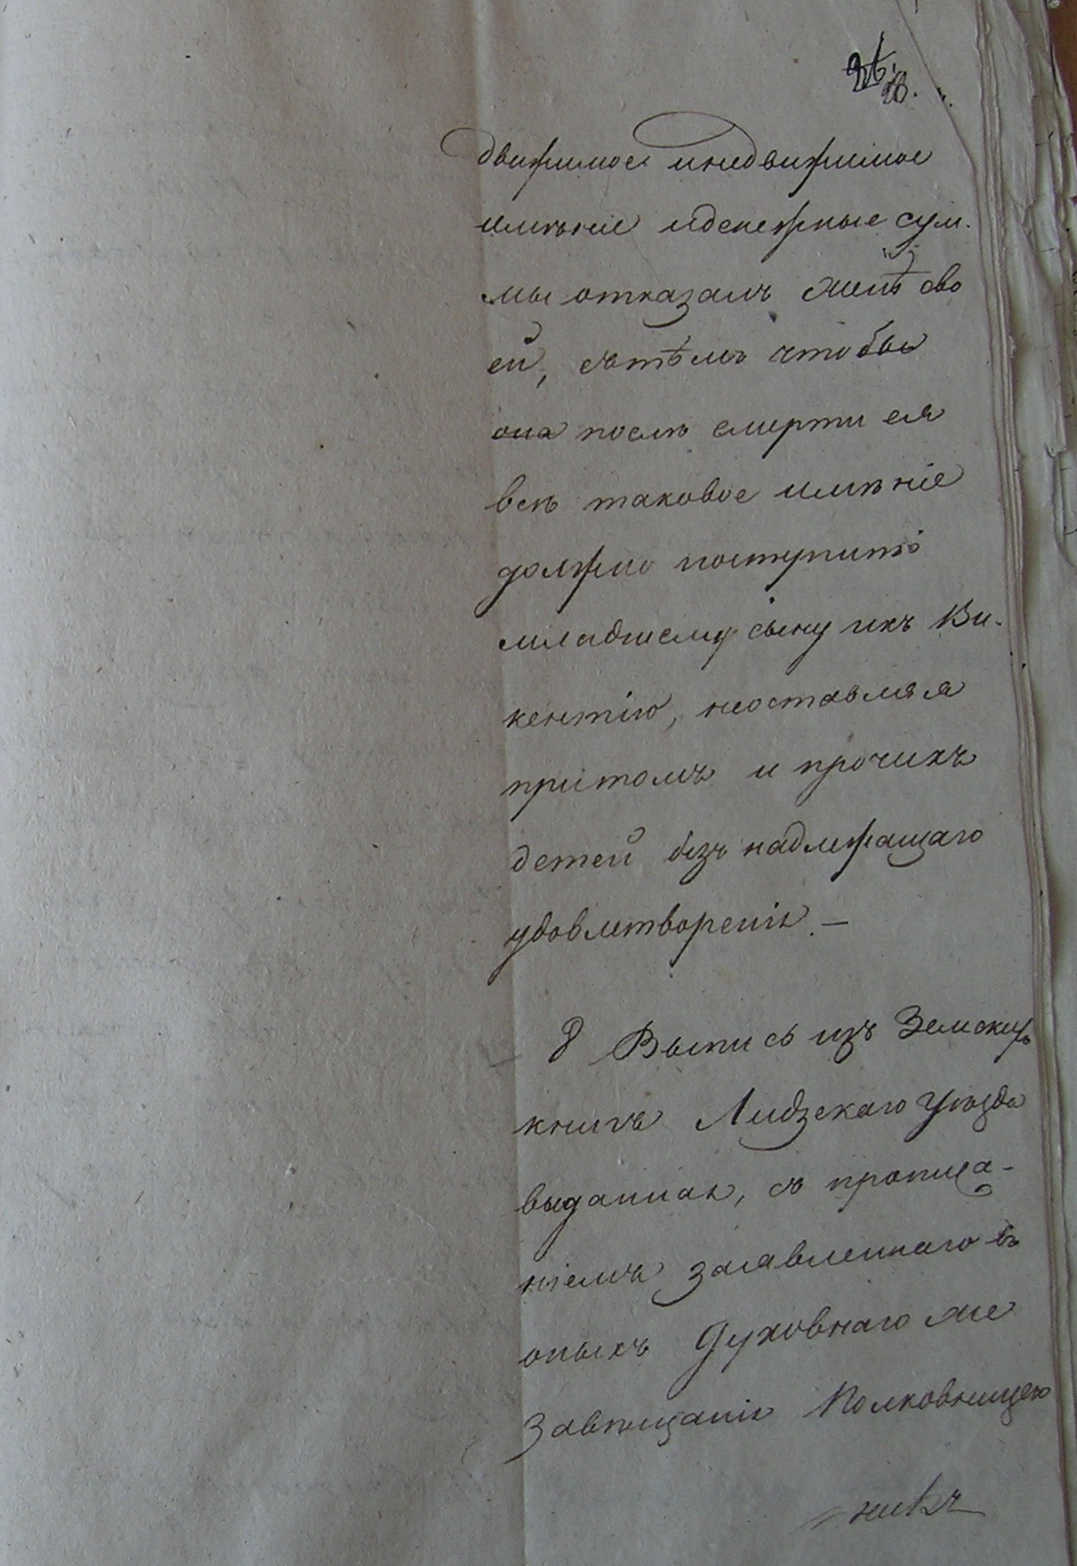 26.
движимое инедвижимое
имѣніе иденежные сум-
мы отказалъ женѣ сво
ей, сътѣмъ чтобы
она послѣ смерти ея
всѣ таковое имѣніе
должно поступить
младшему сыну ихъ Ви-
кентію, неоставляя
притомъ и прочихъ
детей безъ надлежащаго
удовлетворенія. —
8 Выпись изъ Земскихъ
книгъ Лидзскаго уѣзда
выданная, съ прописа-
ніемъ заявленнаго въ
оныхъ Духовнаго же
Завѣщанія Полковницею